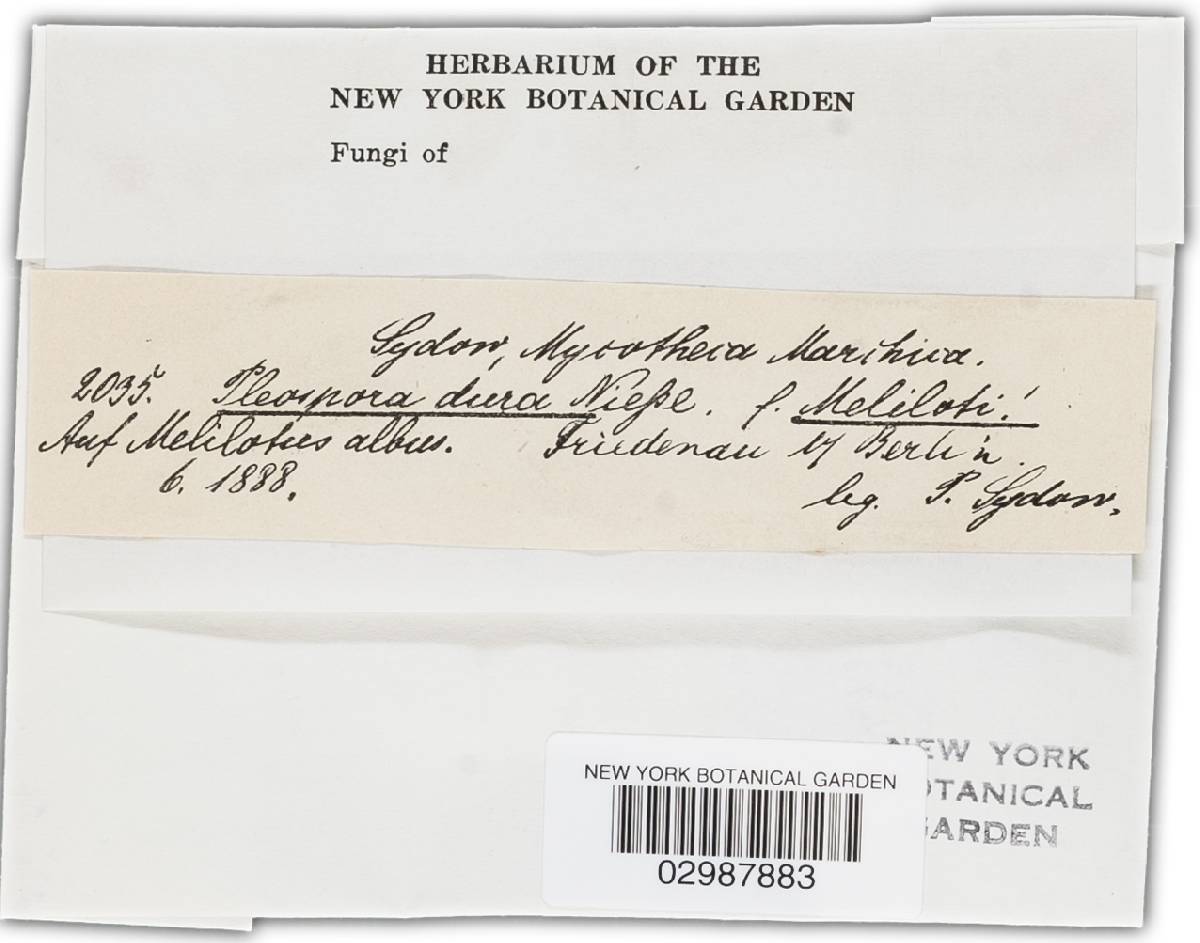 HERBARIUM OF THE
NEW YORK BOTANICAL GARDEN
Fungi of
Sydow, Mycotheca Marchica.
2035. Pleospora dura Nieβl. f. Meliloti!
Auf Melilotus albus. Friedenau b/ Berlin.
6. 1888.
leg. P. Sydow.
NEW YORK
BOTANICAL
GARDEN
NEW YORK BOTANICAL GARDEN
02987883